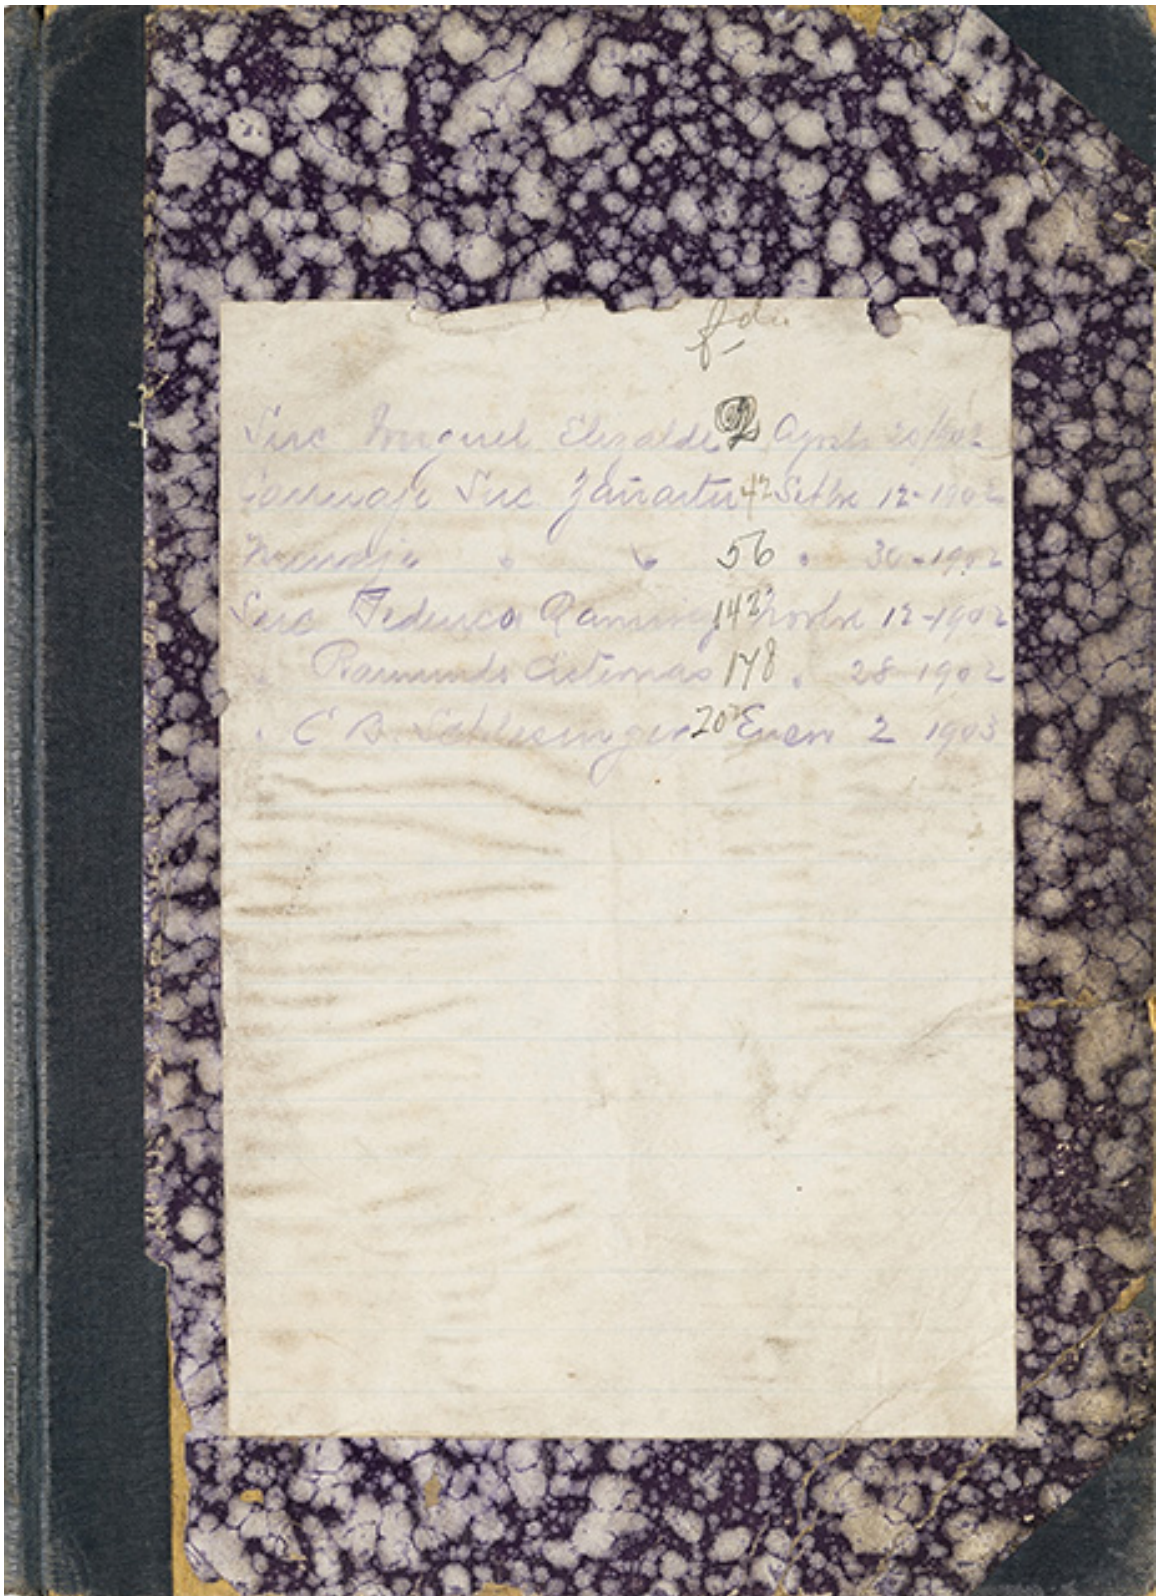 fdu
Suc Miguel Elizalde 2 Agosto 20/902
Suc Zañartu 42 Setbe 12-1902
Menaje " " 56 " 30-1902
Suc Federico Ramirez 142 Novbe 12-1902
" Raimundo 178 " 28 1902
" C B. Schlesinger 207 Enero 2 1903